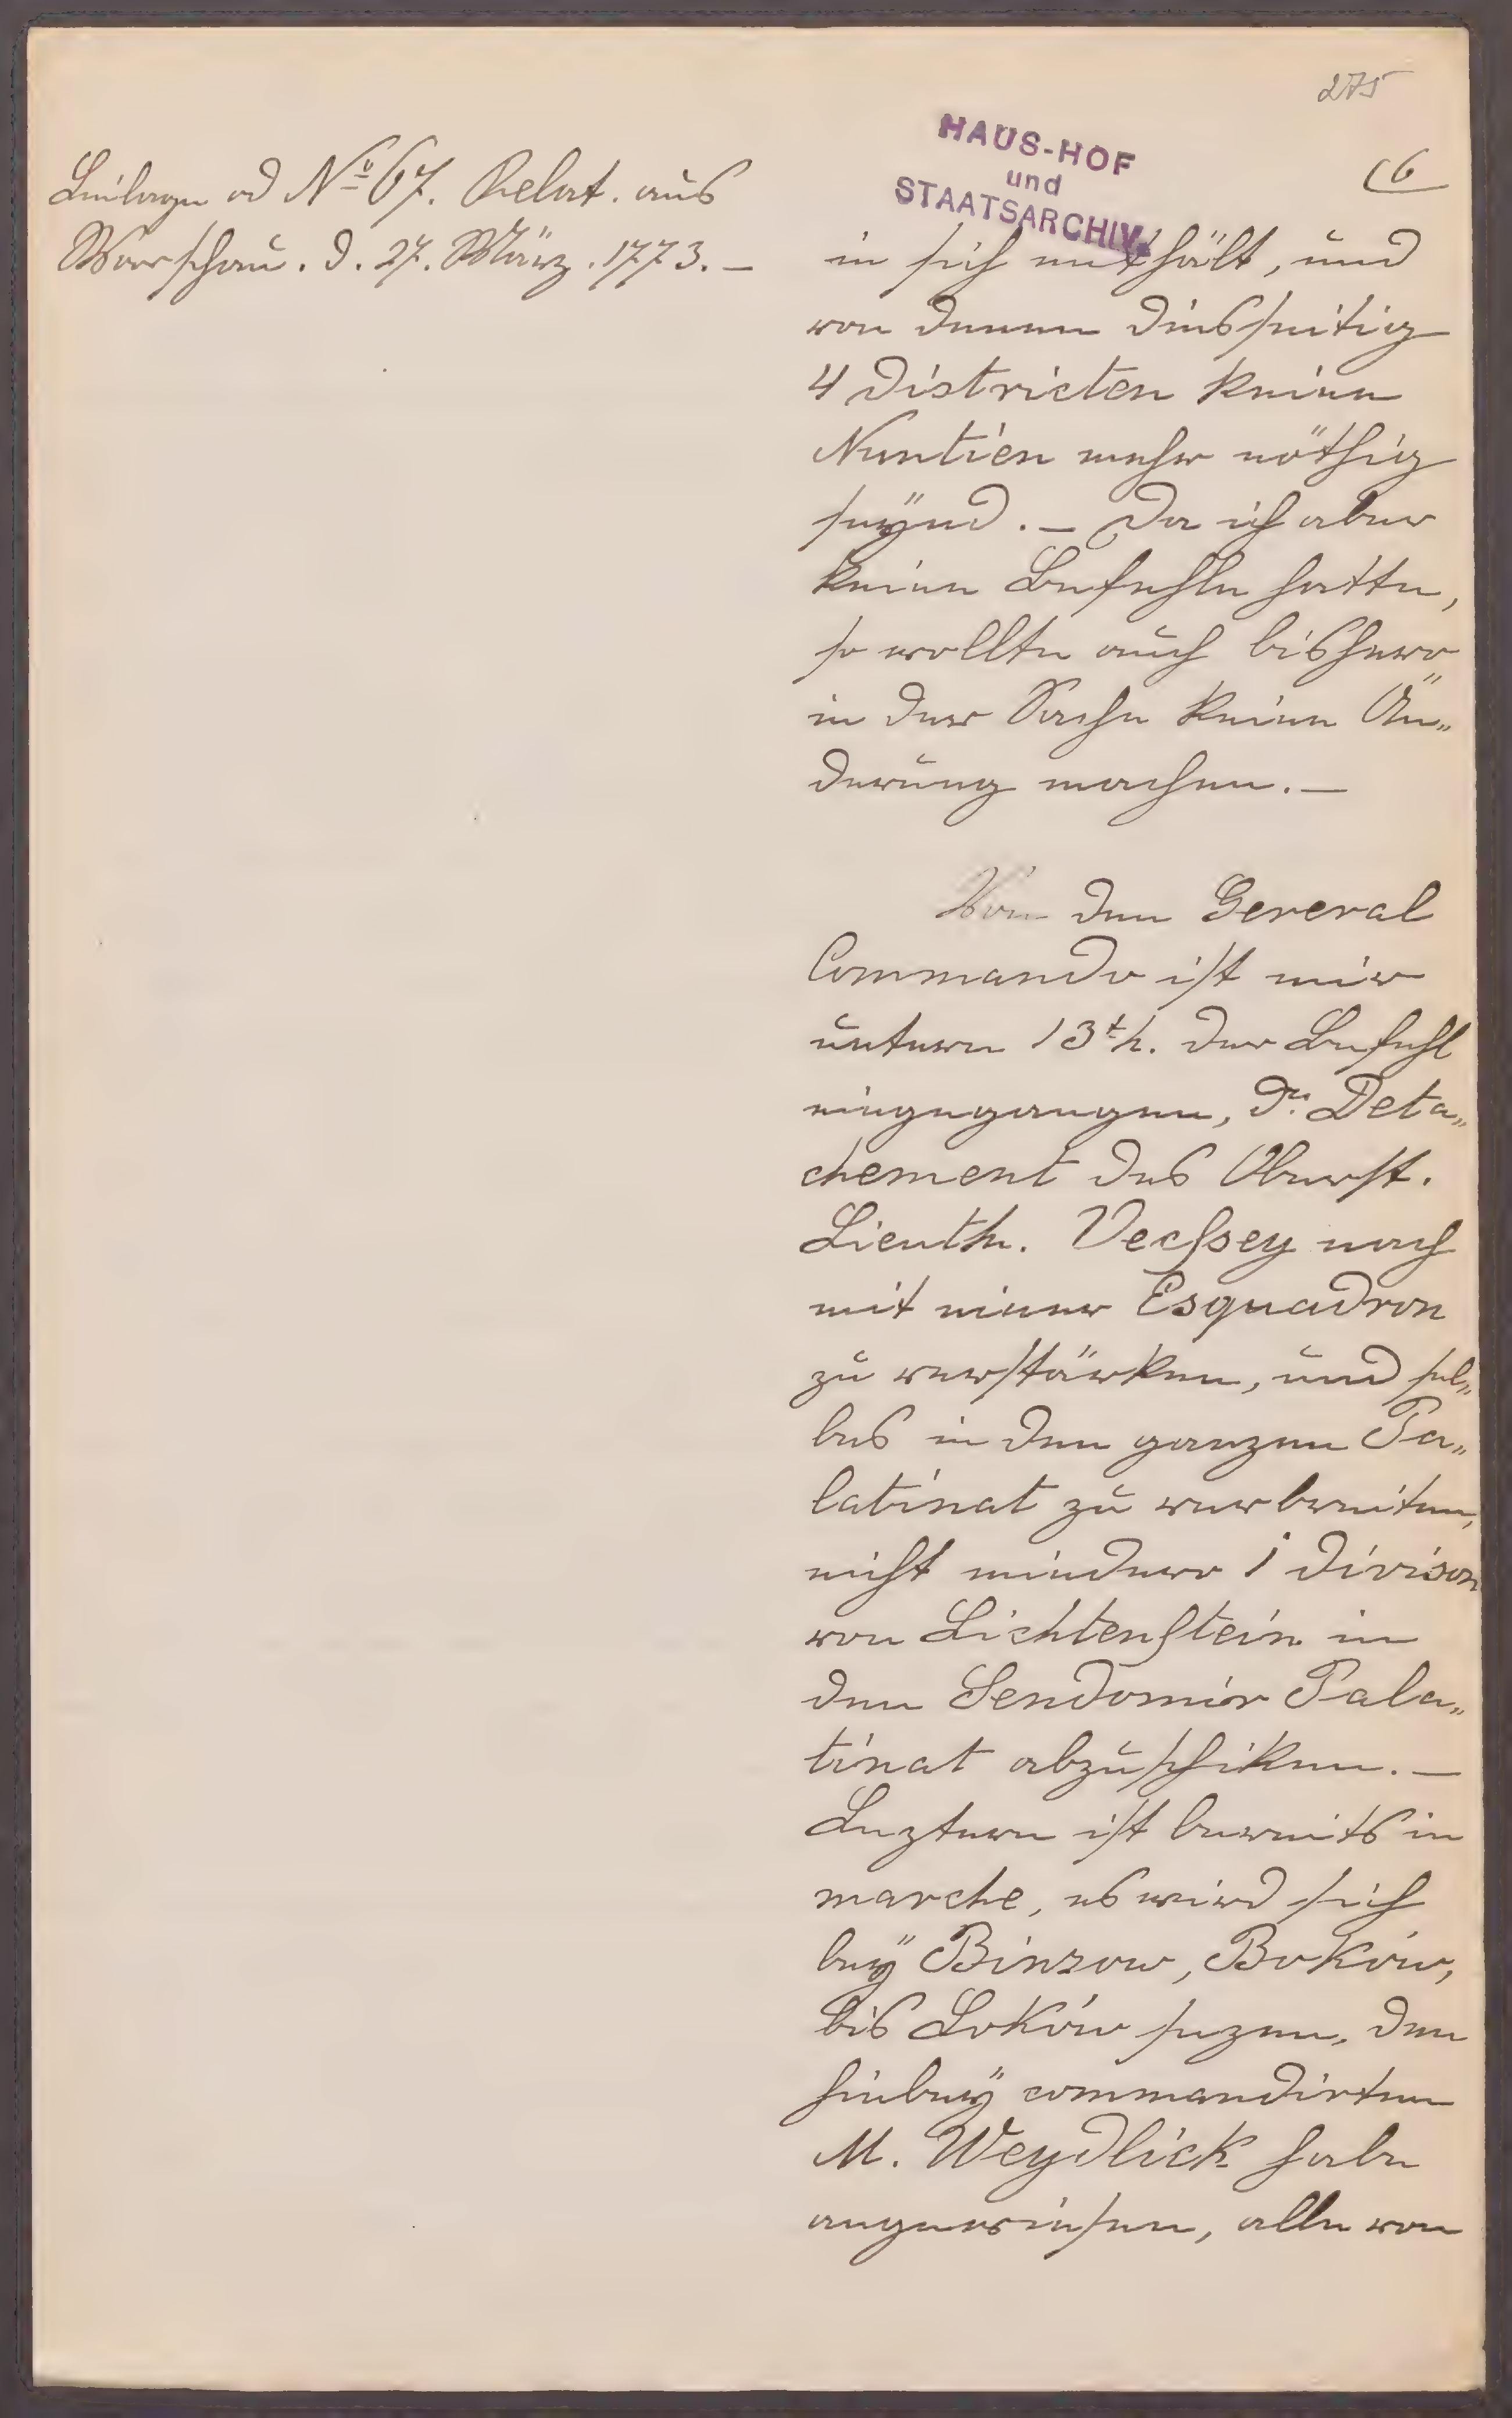 275
HAUS-HOF
und
STAATSARCHIV.
(6
Beilage ad No 67. Relat. aus
Warschau. d. 27. März. 1773. –
in sich enthält, und
von denen diesseitig
4 Districten keine
Nuntien mehr nöthig
seÿnd. – Da ich aber
keine Befehle hatte,
so wollte auch bishero
in der Sache keine Än„
derung machen. –
Von dem Gereral
Commando ist mir
unterm 13th. der Befehl
eingegangen, ds. Deta„
chement des Oberst.
Lieuth. Vecsey noch
mit einer Esquadron
zu verstärken, und sel„
bes in dem ganzen Pa„
latinat zu verbreiten,
nicht mindero 1 Divison
von Lichtenstein in
den Sendomir Pala„
tinat abzuschiken. –
Leztere ist bereits in
marche, es wird sich
beÿ Binzow, Bokow,
bis Lokow sezen, den
hiebeÿ commandirten
M. Weydlick habe
angewiesen, alle von